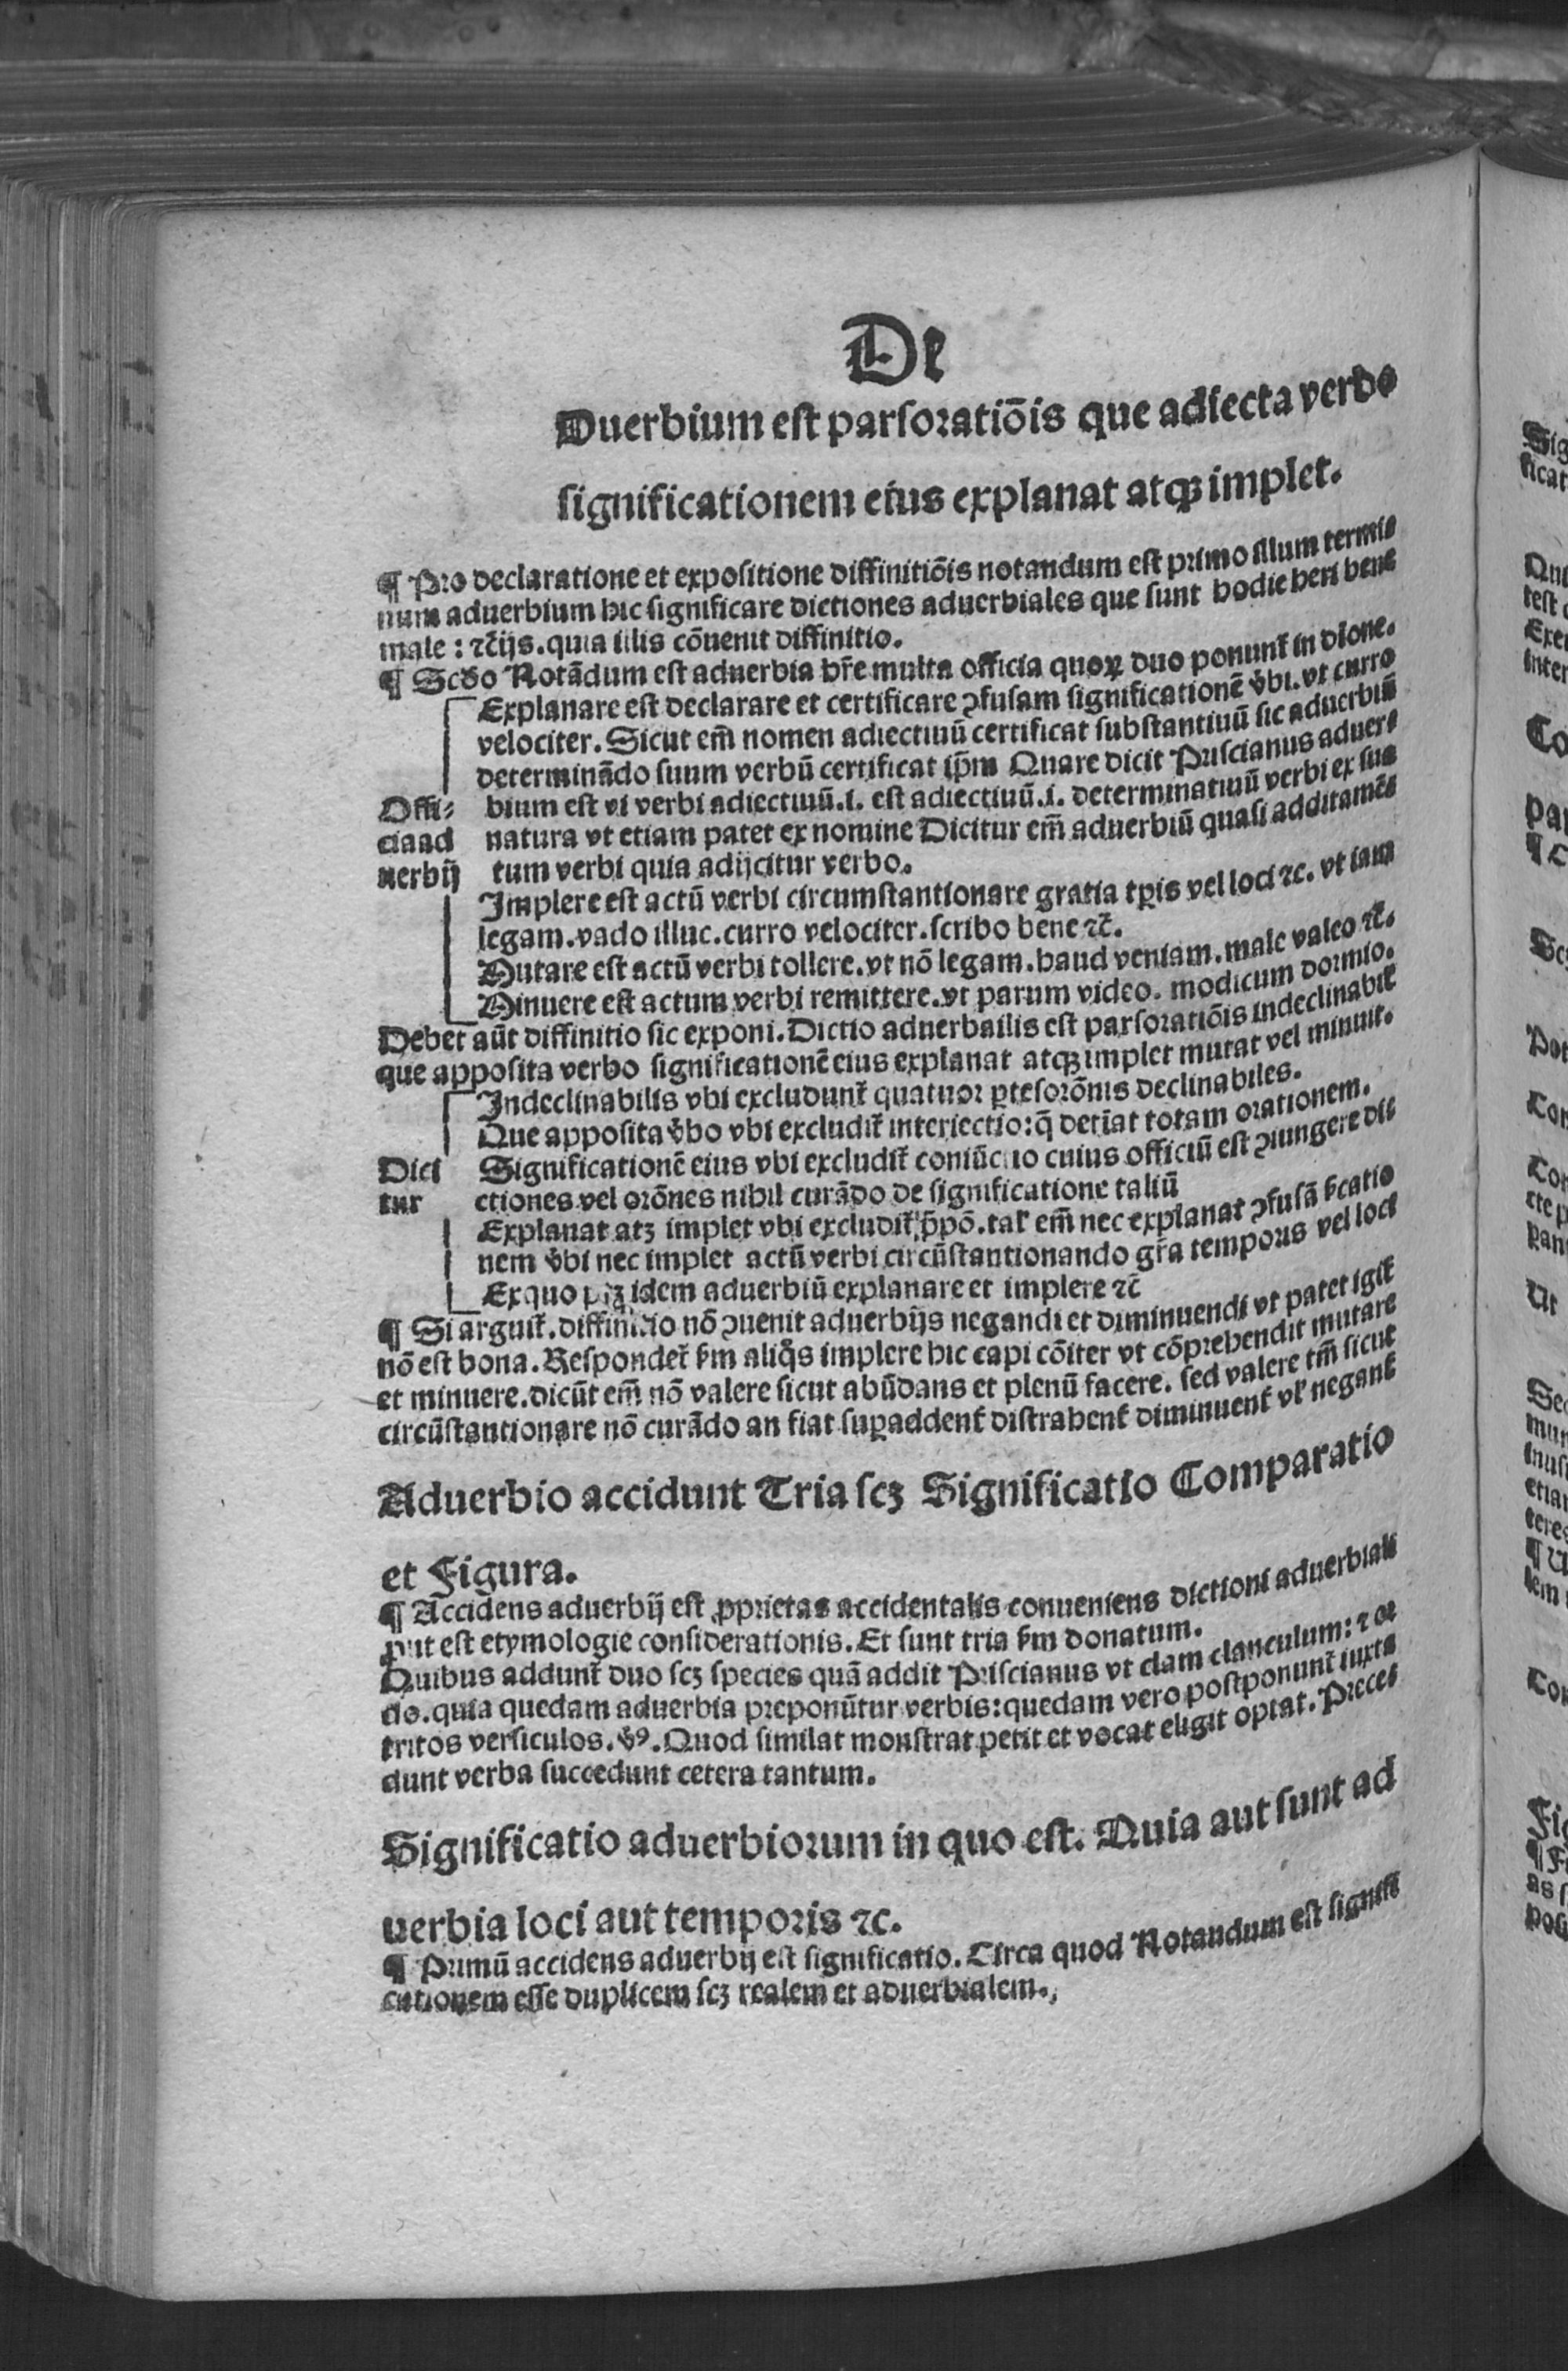 De
Duerbium est parsoratiõis que adiecta verbo
significationem eius explanat atqꝫ implet.
¶ Pro declaratione et expositione diffinitiõis notandum est primo illum termi⸗
num aduerbium hic significare dictiones aduerbiales que sunt hodie heri bene
male: ⁊c̃ijs. quia illis cõuenit diffinitio.
¶ Scd̃o Notãdum est aduerbia hr̃e multa officia quoꝝ duo ponunt᷑ in dione.
Explanare est declarare et certificare ꝯfusam significationẽ v̓bi. vt curro
velociter. Sicut em̃ nomen adiectiuũ certificat substantiuũ sic aduerbiũ
determinãdo suum verbũ certificat ip̃m Quare dicit Priscianus aduer⸗
Offi⸗ bium est vi verbi adiectiuũ.i. est adiectiuũ.i. determinatiuũ verbi ex sua
ciaad natura vt etiam patet ex nomine Dicitur em̃ aduerbiũ quasi additamẽ⸗
uerbij tum verbi quia adijcitur verbo.
Implere est actũ verbi circumstantionare gratia tꝑis vel loci ⁊c. vt iam
legam. vado illuc. curro velociter. scribo bene ⁊c̃.
Mutare est actũ verbi tollere. vt nõ legam. haud veniam. male valeo ⁊c̃.
Minuere est actum verbi remittere. vt parum video. modicum dormio.
Debet aũt diffinitio sic exponi. Dictio aduerbailis est parsoratiõis indeclinabił
que apposita verbo significationẽ eius explanat atqꝫ implet mutat vel minuit.
Indeclinabilis vbi excludunt᷑ quatuor ꝑtesorõnis declinabiles.
Que apposita v̓bo vbi excludit᷑ interiectio: q̃ det̃iat totam orationem.
Dici Significationẽ eius vbi excludit᷑ coniũctio cuius officiũ est ꝯiungere di⸗
tur ctiones vel orõnes nihil curãdo de significatione taliũ
Explanat atꝫ implet vbi excludit᷑ p̃põ. tał em̃ nec explanat ꝯfusã s̓catio
nem v̓bi nec implet actũ verbi circũstantionando gr̃a temporis vel loci
Exquo ptꝫ idem aduerbiũ explanare et implere ⁊c̃
¶ Si arguit᷑. diffinitio nõ ꝯuenit aduerbijs negandi et diminuendi vt patet igit᷑
nõ est bona. Respondet᷑ s̓m aliq̃s implere hic capi cõiter vt cõprehendit mutare
et minuere. dicũt em̃ nõ valere sicut abũdans et plenũ facere. sed valere tm̃ sicut
circũstantionare nõ curãdo an fiat suꝑaddent᷑ distrahent᷑ diminuent᷑ vł negant᷑
Aduerbio accidunt Tria scꝫ Significatio Comparatio
et Figura.
¶ Accidens aduerbij est ꝓprietas accidentalis conueniens dictioni aduerbiali
ꝓut est etymologie considerationis. Et sunt tria s̓m donatum.
Quibus addunt᷑ duo scꝫ species quã addit Priscianus vt clam clanculum: ⁊ or
do. quia quedam aduerbia preponũtur verbis: quedam vero postponunt᷑ iuxta
tritos versiculos. v̓ꝰ. Quod similat monstrat petit et vocat eligit optat. Prece⸗
dunt verba succedunt cetera tantum.
Significatio aduerbiorum in quo est. Quia aut sunt ad
uerbia loci aut temporis ⁊c.
¶ Primũ accidens aduerbij est significatio. Circa quod Notandum est signifi
cationem esse duplicem scꝫ realem et aduerbialem.